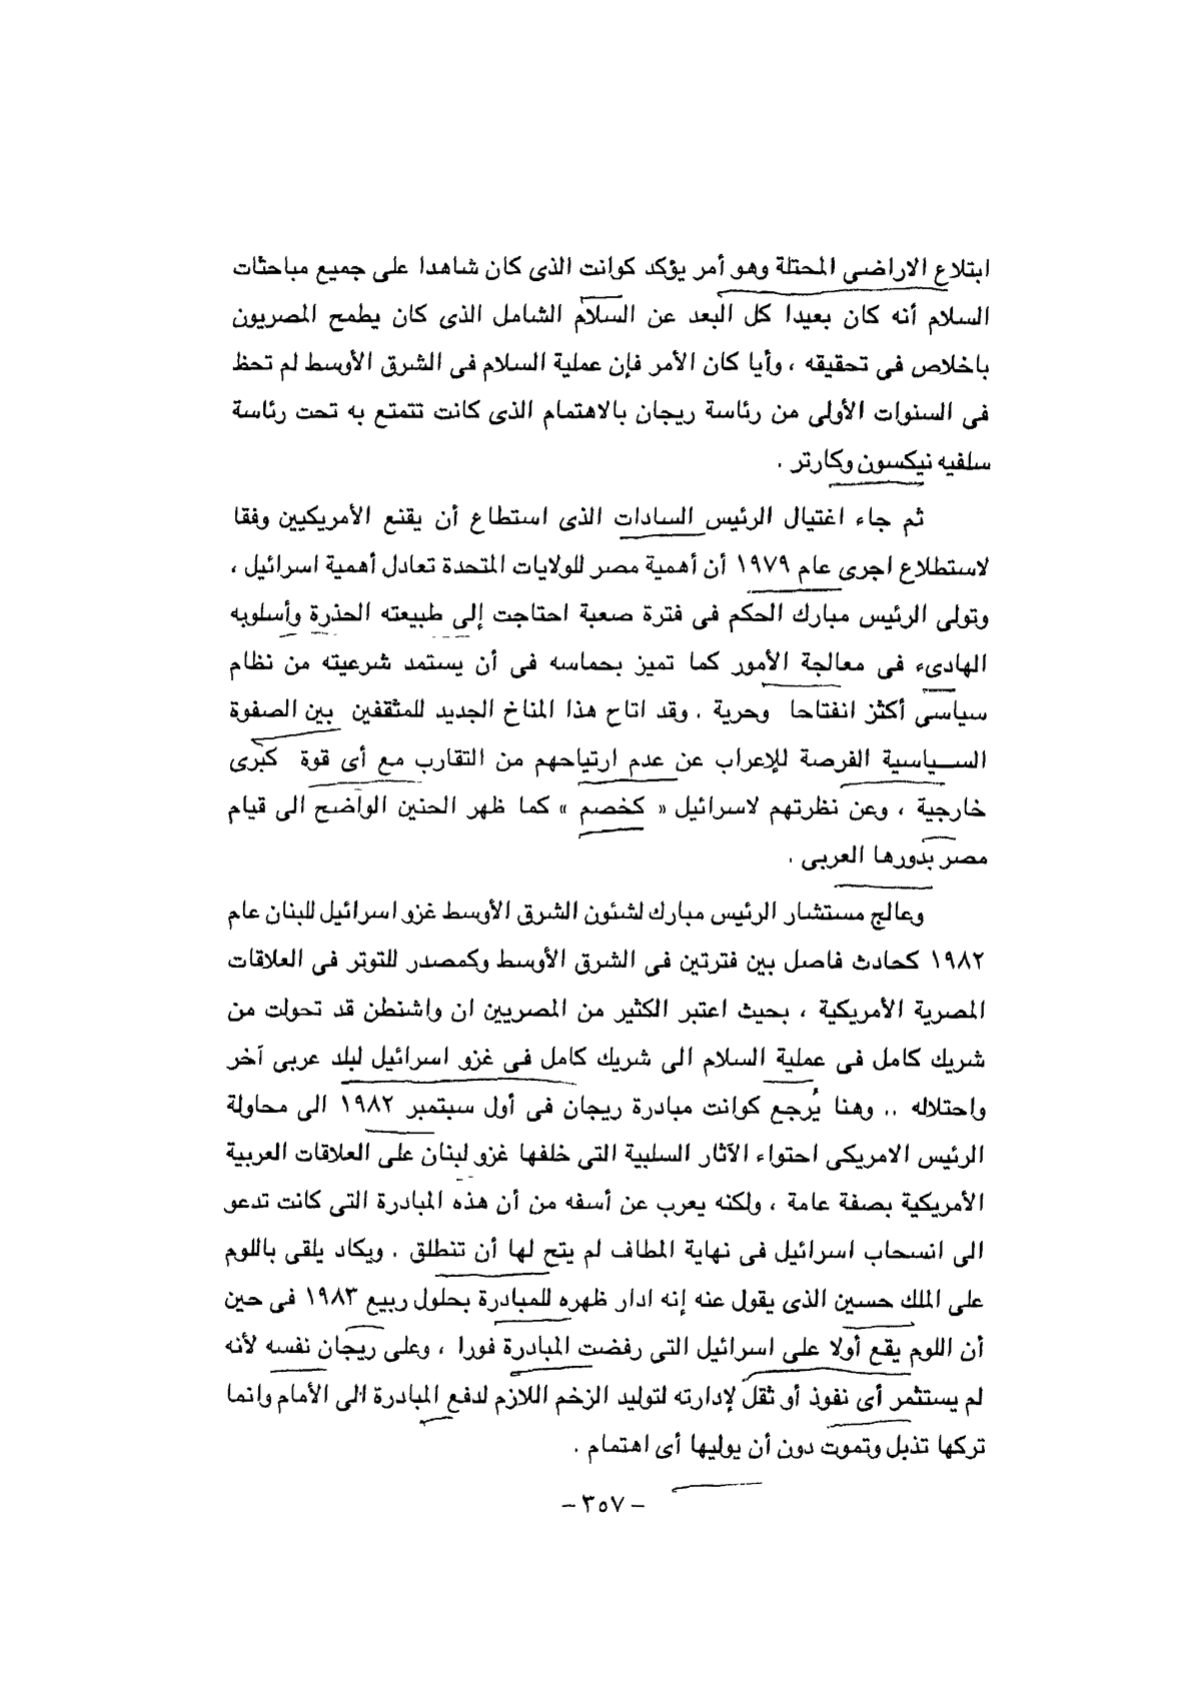 ابتلاع الاراضى المحتلة وهو أمر يؤكد كوانت الذى كان شاهدا على جميع مباحثات
السلام أنه كان بعيدا كل البعد عن السلام الشامل الذى كان يطمح المصريون
باخلاص فى تحقيقه ، وأيا كان الأمر فإن عملية السلام فى الشرق الأوسط لم تحظ
فى السنوات الأولى من رئاسة ريجان بالاهتمام الذى كانت تتمتع به تحت رئاسة
سلفيه نيكسون وكارتر .
ثم جاء اغتيال الرئيس السادات الذى استطاع أن يقنع الأمريكيين وفقا
لاستطلاع اجرى عام ١٩٧٩ أن أهمية مصر للولايات المتحدة تعادل أهمية اسرائيل ،
وتولى الرئيس مبارك الحكم فى فترة صعبة احتاجت إلى طبيعته الحذرة وأسلوبه
الهادىء فى معالجة الأمور كما تميز بحماسه فى أن يستمد شرعيته من نظام
سياسى أكثر انفتاحا وحرية . وقد اتاح هذا المناخ الجديد للمثقفين بين الصفوة
السياسية الفرصة للإعراب عن عدم ارتياحهم من التقارب مع أى قوة كبرى
خارجية ، وعن نظرتهم لاسرائيل « كخصم » كما ظهر الحنين الواضح الى قيام
مصر بدورها العربى .
وعالج مستشار الرئيس مبارك لشئون الشرق الأوسط غزو اسرائيل للبنان عام
١٩٨٢ كحادث فاصل بين فترتين فى الشرق الأوسط وكمصدر للتوتر فى العلاقات
المصرية الأمريكية ، بحيث اعتبر الكثير من المصريين ان واشنطن قد تحولت من
شريك كامل فى عملية السلام الى شريك كامل فى غزو اسرائيل لبلد عربى آخر
واحتلاله .. وهنا يُرجع كوانت مبادرة ريجان فى أول سبتمبر ١٩٨٢ الى محاولة
الرئيس الامريكى احتواء الآثار السلبية التى خلفها غزو لبنان على العلاقات العربية
الأمريكية بصفة عامة ، ولكنه يعرب عن أسفه من أن هذه المبادرة التى كانت تدعو
الى انسحاب اسرائيل فى نهاية المطاف لم يتح لها أن تنطلق . ويكاد يلقى باللوم
على الملك حسين الذى يقول عنه إنه ادار ظهره للمبادرة بحلول ربيع ١٩٨٣ فى حين
أن اللوم يقع أولا على اسرائيل التى رفضت المبادرة فورا ، وعلى ريجان نفسه لأنه
لم يستثمر أى نفوذ أو ثقل لإدارته لتوليد الزخم اللازم لدفع المبادرة الى الأمام وانما
تركها تذبل وتموت دون أن يوليها أى اهتمام .
– ٣٥٧ –